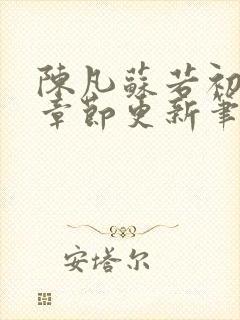 陳凡蘇若初
章節更新筆
安塔尔